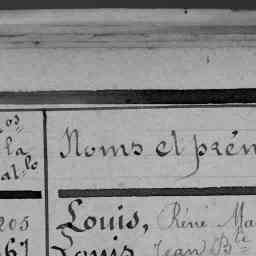 Nos
la
Noms et prén
205 Louis, René Ma
67 Louis Jean Bte